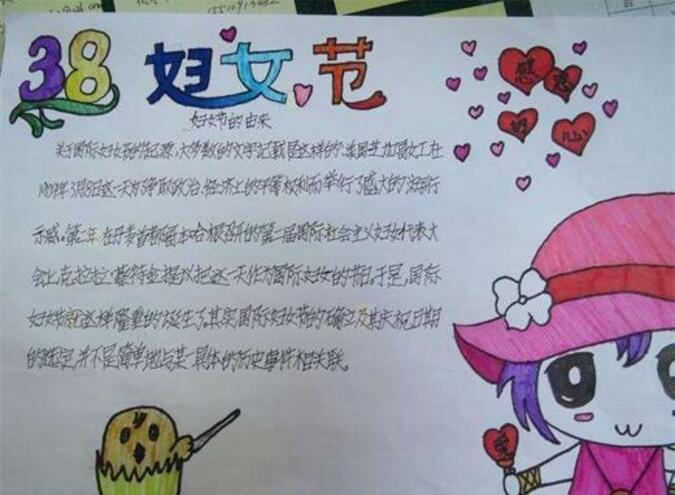 15510913482
38 妇女节
妇女节的由来
关于国际妇女节的起源,大多数的文字记载是这样的:美国芝加哥女工在
1909年3月8日这一天为争取政治、经济上的平等权利而举行了盛大的游行
示威。第二年在丹麦首都哥本哈根召开的第二届国际社会主义妇女代表大
会上克拉拉·蔡特金提议把这一天作为国际妇女的节日。于是,国际
妇女节就这样隆重的诞生了。其实国际妇女节的确立及其庆祝日期
的选定,并不是简单地与某一具体的历史事件相关联。
感恩
的心
爱